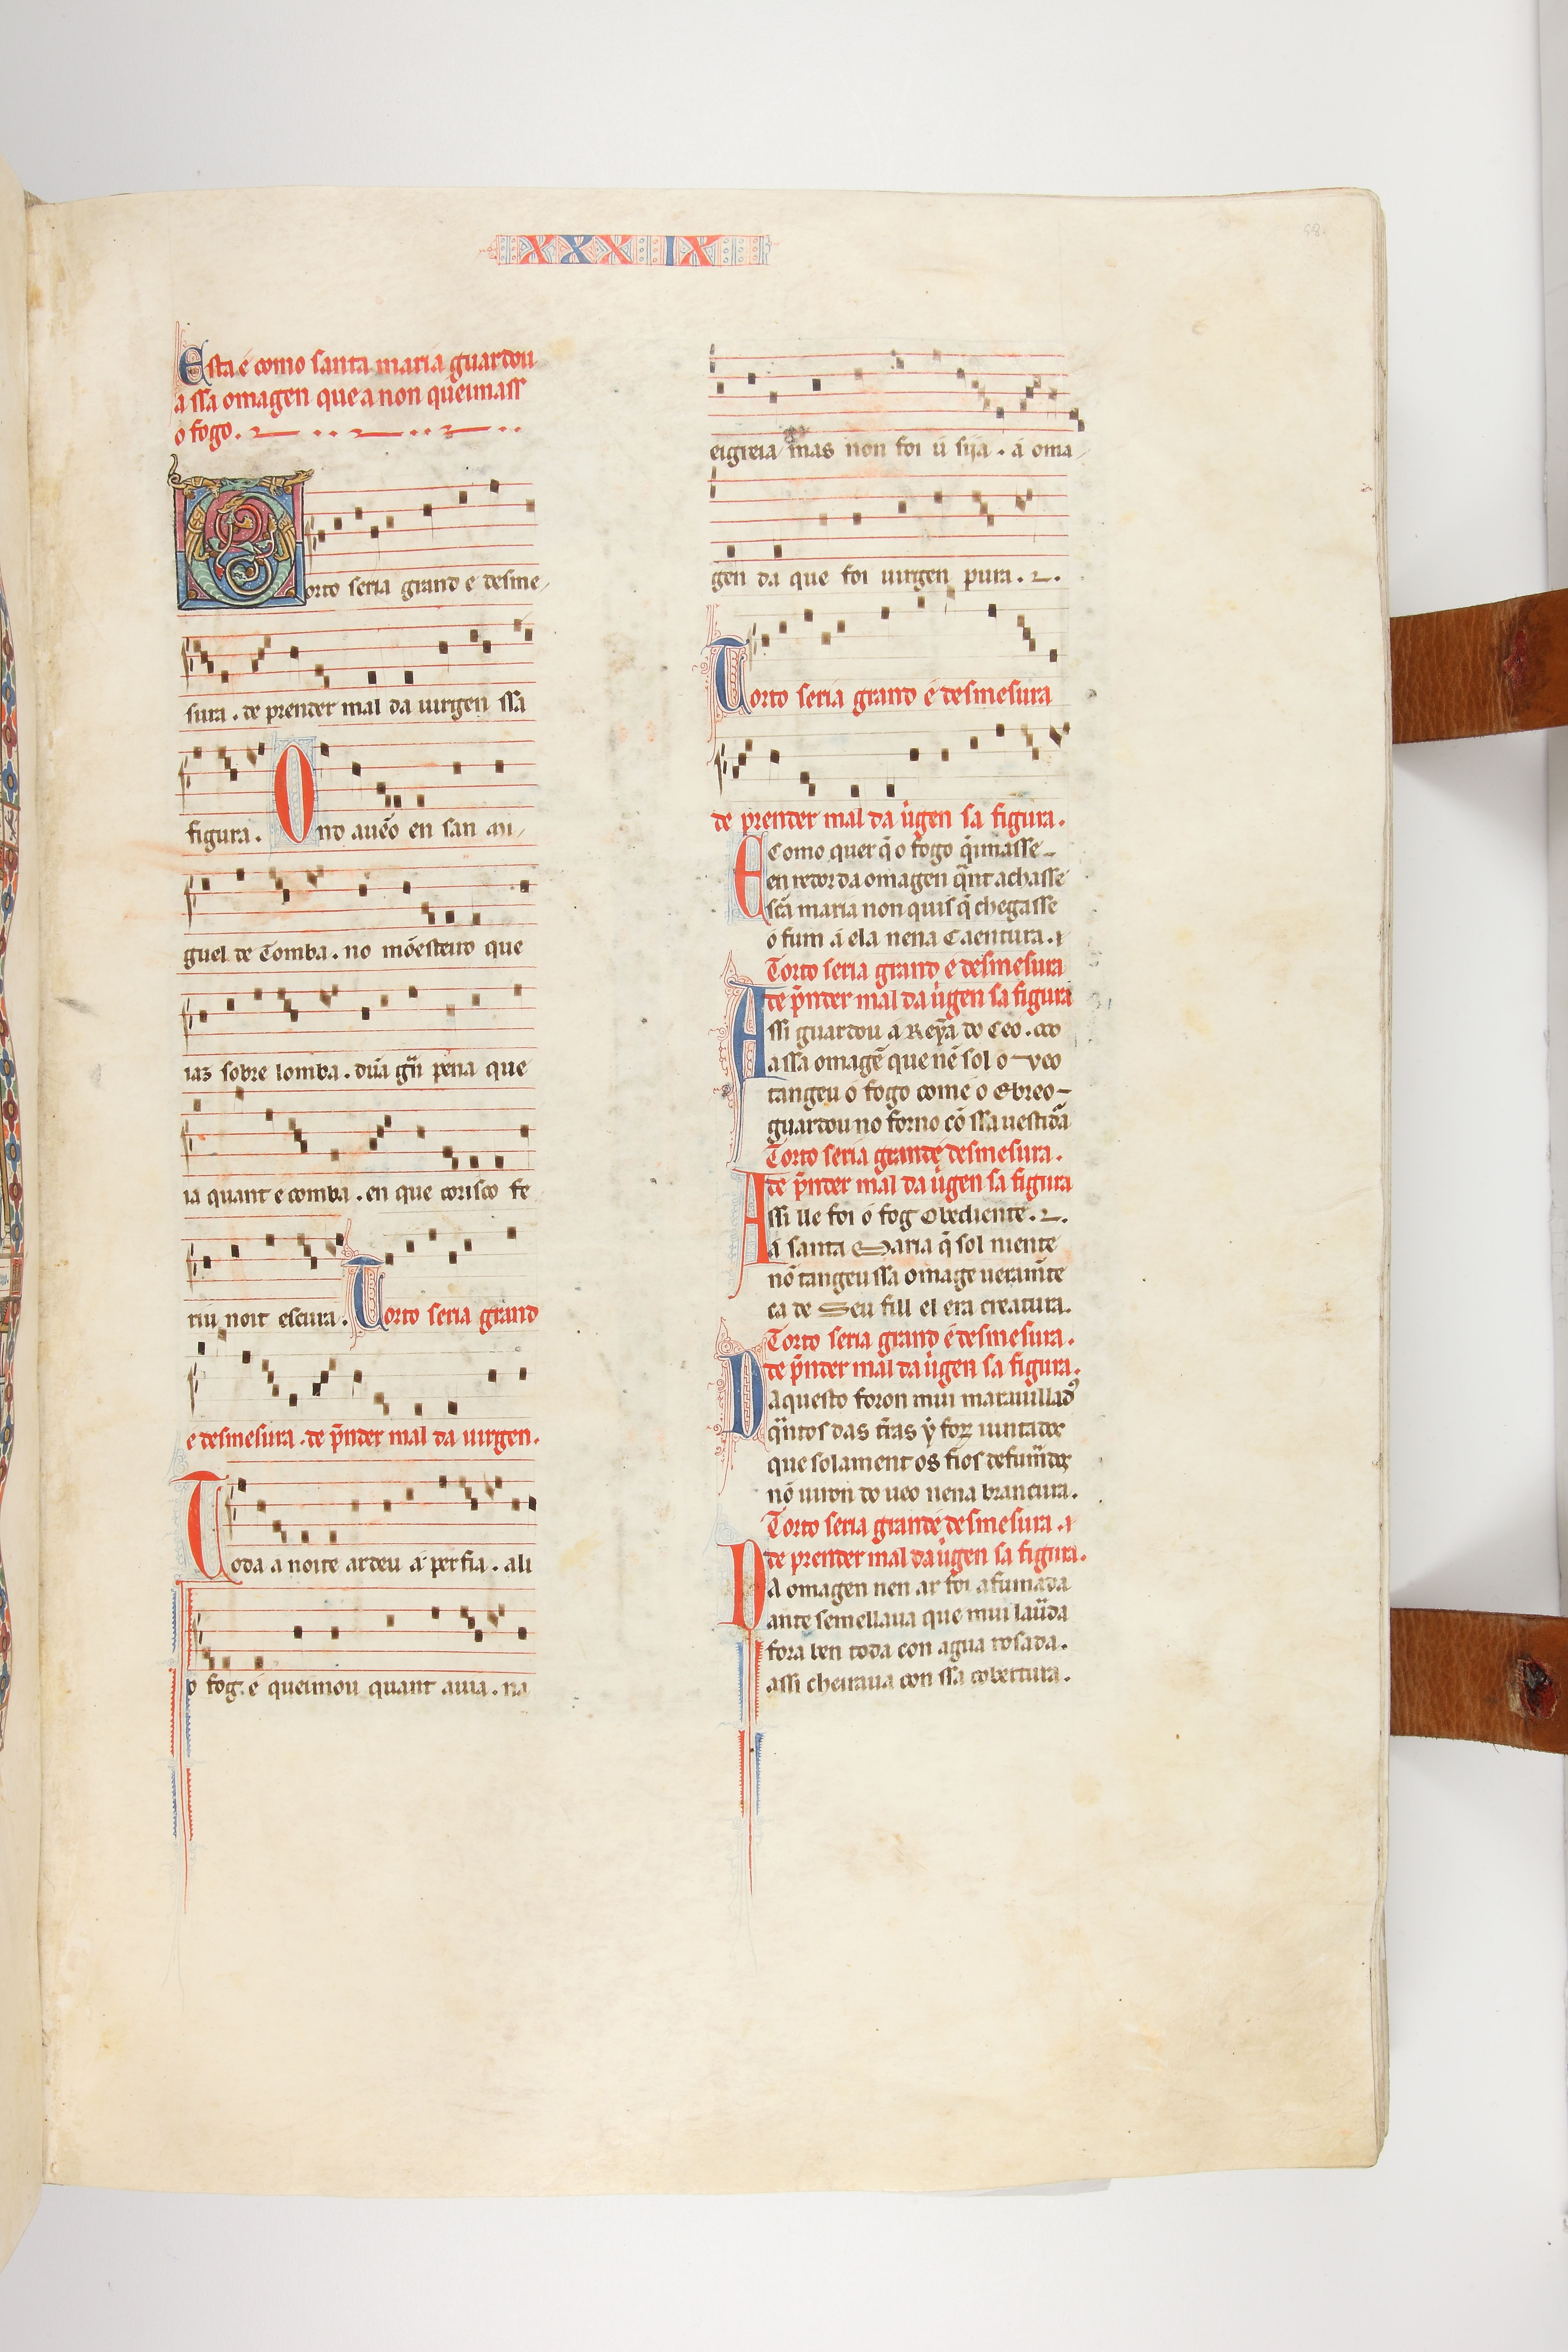 XXXIX
Esta é como santa maria guardou
a ssa omagen que a non queimass
o fogo.
Torto seria grand e desme
sura. de prender mal da uirgen ssa
figura. Ond auẽo en san mi
guel de Tomba. no mõesteiro que
iaz sobre lomba. dũa gñ pena que
ia quant e comba. en que corisco fe
riu noit escura. Torto seria grand
e desmesura. de p̃nder mal da uirgen.
Toda a noite ardeu á perfia. ali
o fog. e queimou quant auia. na
eigreia mas non foi ú sija. á oma
gen da que foi uirgen pura.
Torto seria grand é desmesura
de prender mal da u̇gen sa figura.
E como quer q̃ o fogo q̃imasse
en redor da omagen q̃nt achasse
sc̃a maria non quis q̃ chegasse
ó fum á ela nena caentura.
Torto seria grand e desmesura
de p̃nder mal da u̇gen sa figura
Assi guardou á Reỹa do Ceo.
a ssa omagẽ que nẽ sol o ueo
tangeu ó fogo come ó ebreo
guardou no forno cõ ssa uestidã
Torto seria grand é desmesura.
de p̃nder mal da u̇gen sa figura
Assi lle foi ó fog obediente.
á santa Maria q̃ sol niente
nõ tangeu ssa omage ueram̃te
ca de Seu fill el era creatura.
Torto seria grand é desmesura.
de p̃nder mal da u̇gen sa figura.
Daquesto foron mui marauillad9
q̃ntos das t̃ras ẏ forõ iuntados
que solament os fios defum̃ados
nõ uiron do ueo nena brancura.
Torto seria grand é desmesura.
de prender mal da u̇gen sa figura.
Da omagen nen ar foi afumada
ante semellaua que mui lau̇da
fora ben toda con agua rosada.
assi cheiraua con ssa cobertura.